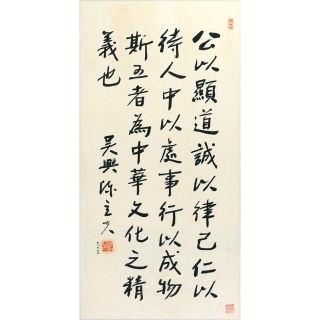 公以顯道誠以律己仁以
待人中以處事行以成物
斯五者為中華文化之精
義也
吳興陳立夫